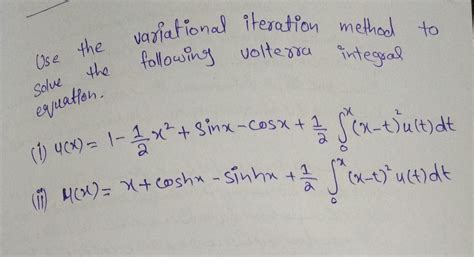 Use the variational iteration method to
solve the following volterra integral
equation.
(i) u(x) = 1 - 1/2 x² + sinx - cosx + 1/2 ∫₀ˣ (x-t)² u(t) dt
(ii) u(x) = x + coshx - sinhx + 1/2 ∫₀ˣ (x-t)² u(t) dt